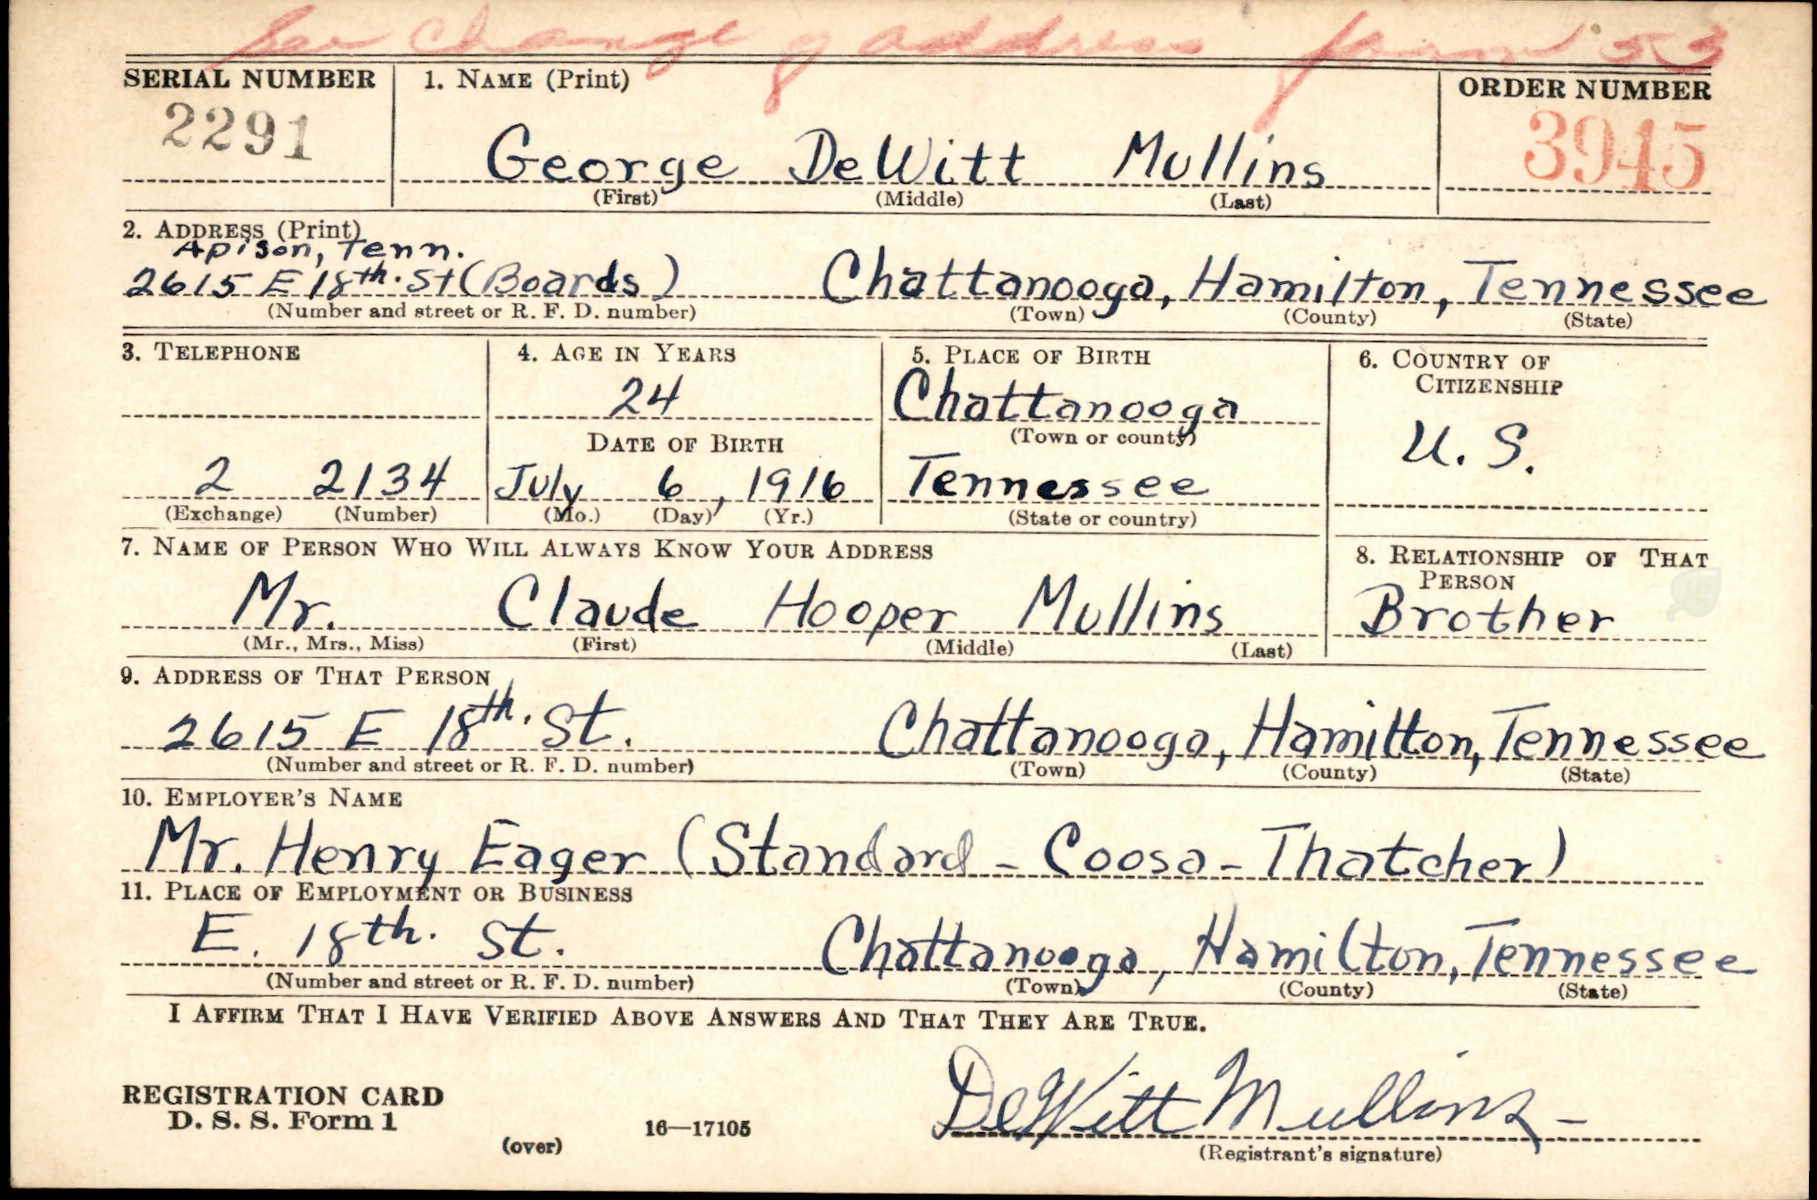 See change of address form 53
SERIAL NUMBER
2291
1. NAME (Print)
George DeWitt Mullins
(First) (Middle) (Last)
ORDER NUMBER
3945
2. ADDRESS (Print)
Apison, Tenn.
2615 E 18th. St (Boards) Chattanooga, Hamilton, Tennessee
(Number and street or R. F. D. number) (Town) (County) (State)
3. TELEPHONE
2 2134
(Exchange) (Number)
4. AGE IN YEARS
24
DATE OF BIRTH
July 6, 1916
(Mo.) (Day) (Yr.)
5. PLACE OF BIRTH
Chattanooga
(Town or county)
Tennessee
(State or country)
6. COUNTRY OF
CITIZENSHIP
U. S.
7. NAME OF PERSON WHO WILL ALWAYS KNOW YOUR ADDRESS
Mr. Claude Hooper Mullins
(Mr., Mrs., Miss) (First) (Middle) (Last)
8. RELATIONSHIP OF THAT
PERSON
Brother
9. ADDRESS OF THAT PERSON
2615 E 18th. St. Chattanooga, Hamilton, Tennessee
(Number and street or R. F. D. number) (Town) (County) (State)
10. EMPLOYER'S NAME
Mr. Henry Eager (Standard - Coosa - Thatcher)
11. PLACE OF EMPLOYMENT OR BUSINESS
E. 18th. St. Chattanooga, Hamilton, Tennessee
(Number and street or R. F. D. number) (Town) (County) (State)
I AFFIRM THAT I HAVE VERIFIED ABOVE ANSWERS AND THAT THEY ARE TRUE.
REGISTRATION CARD
D. S. S. Form 1
(over)
16—17105
DeWitt Mullins -
(Registrant's signature)